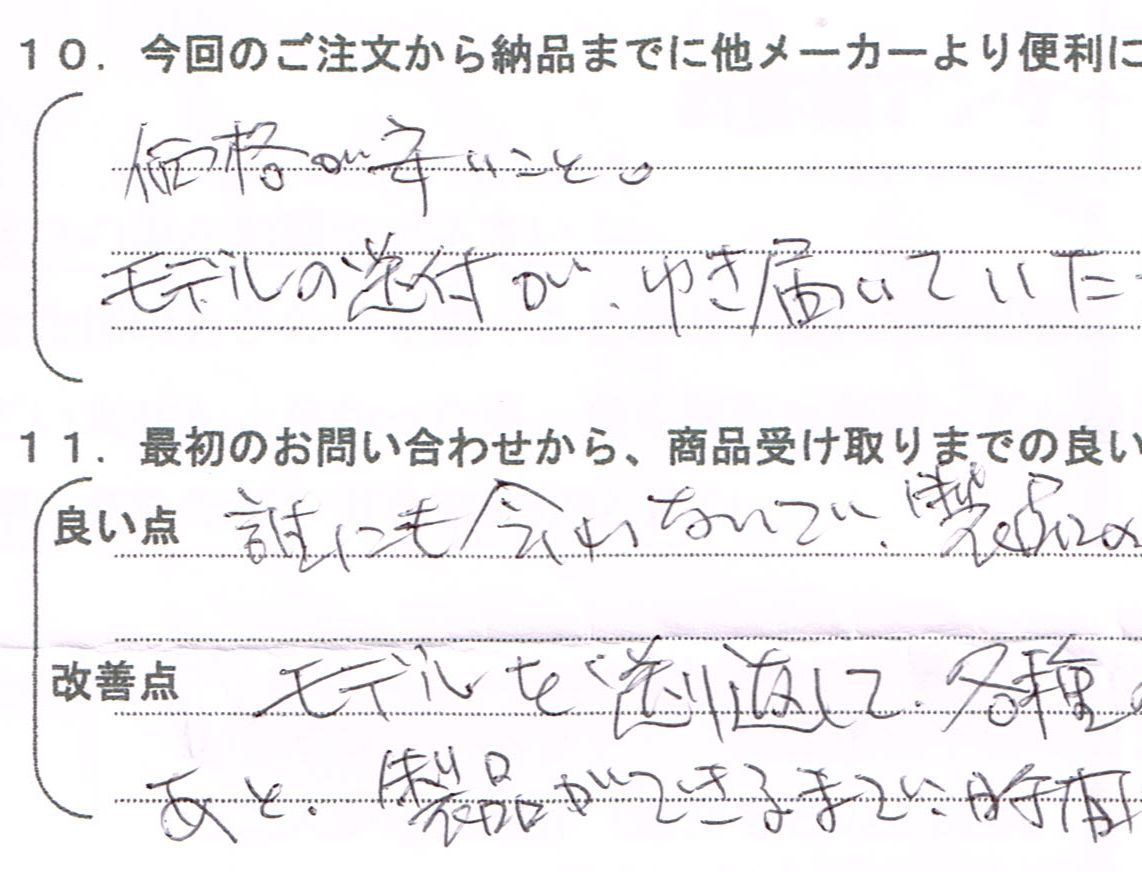 10. 今回のご注文から納品までに他メーカーより便利に
価格が安いこと。
モデルの送付が、ゆき届いていた
11. 最初のお問い合わせから、商品受け取りまでの良い
良い点 誰にも会わないで、製品の
改善点 モデルを送り返して、各種
あと、製品ができるまで、時間